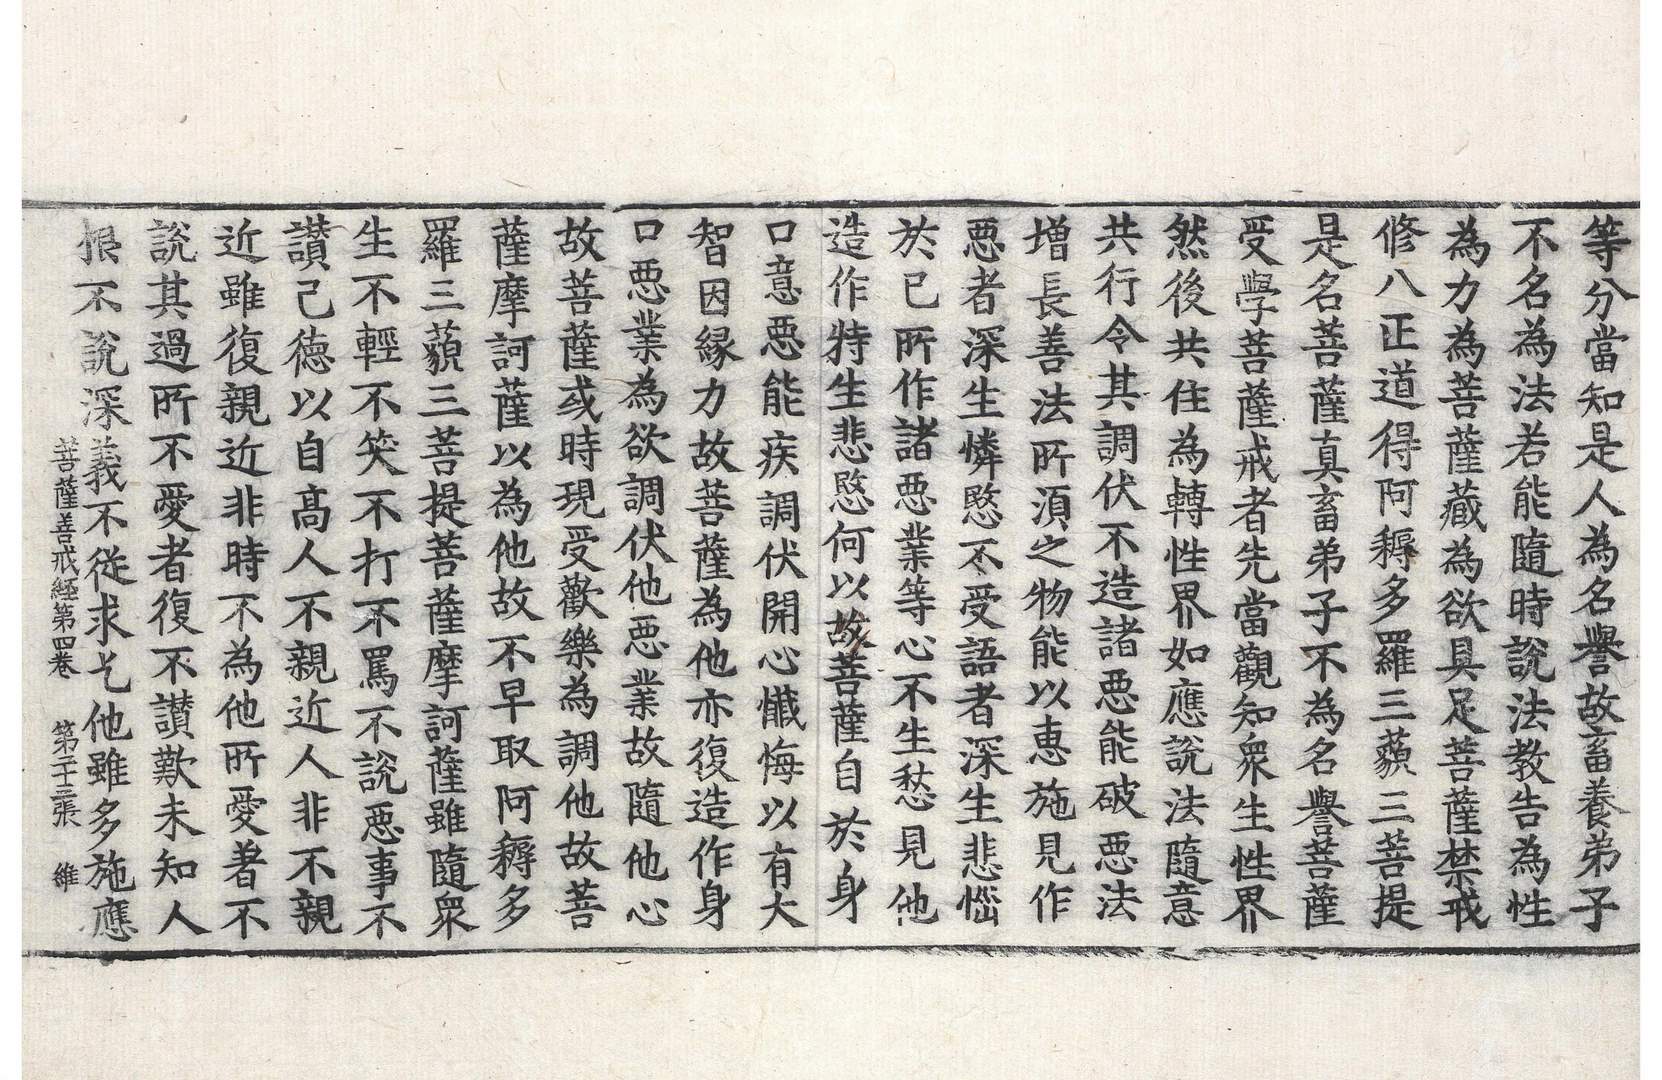 等分當知是人為名譽故畜養弟子
不名為法若能隨時說法教告為性
為力為菩薩藏為欲具足菩薩禁戒
修八正道得阿耨多羅三藐三菩提
是名菩薩真畜弟子不為名譽菩薩
受學菩薩戒者先當觀知衆生性界
然後共住為轉性界如應說法隨意
共行令其調伏不造諸惡能破惡法
增長善法所須之物能以惠施見作
惡者深生憐愍不受語者深生悲惱
於已所作諸惡業等心不生愁見他
造作特生悲愍何以故菩薩自於身
口意惡能疾調伏開心懺悔以有大
智因緣力故菩薩為他亦復造作身
口惡業為欲調伏他惡業故隨他心
故菩薩或時現受歡樂為調他故菩
薩摩訶薩以為他故不早取阿耨多
羅三藐三菩提菩薩摩訶薩雖隨衆
生不輕不笑不打不罵不說惡事不
讃己德以自高人不親近人非不親
近雖復親近非時不為他所愛者不
說其過所不愛者復不讃歎未知人
根不說深義不從求乞他雖多施應
菩薩善戒經第四卷 第二十三張 維